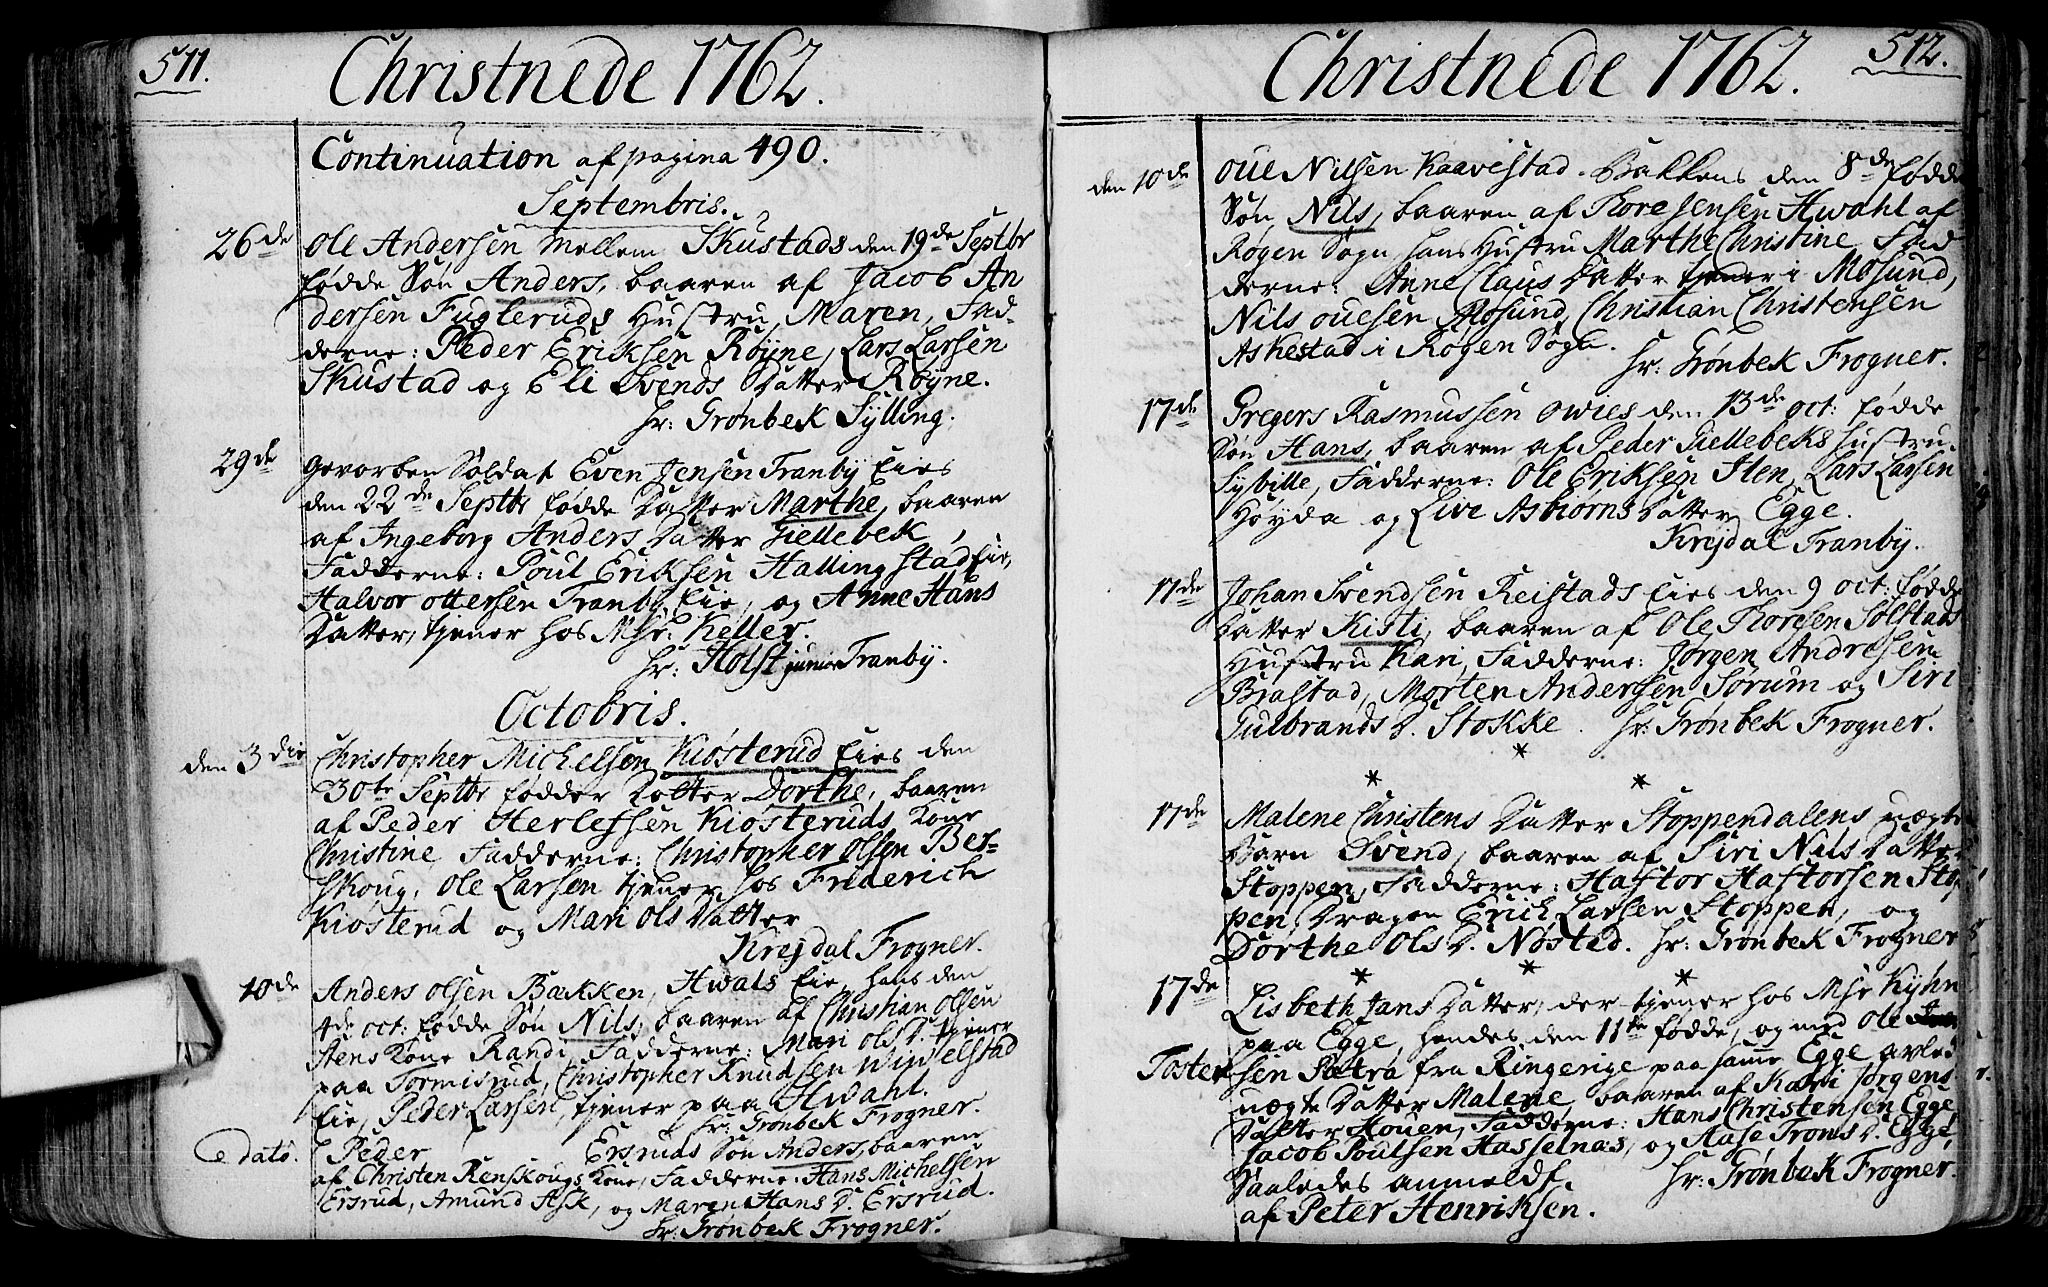 511.
Christnede 1762.
Continuation af pagina 490.
Septembris.
26de Ole Andersen mellem Skustads den 19de Septbr
fødde Søn Anders, baaren af Jacob An
dersen Fugleruds Hustru Maren, Fad-
derne: Peder Eriksen Røyne, Lars Larsen
Skustad og Eli Svends Datter Røyne.
hr: Grønbek Sylling.
29de Gevorben Soldat Even Jensen Tranby Eies
den 22de Septbr fødde Datter Marthe, baaren
af Ingeborg Anders Datter Giellebek,
Fadderne: Poul Eriksen Hallingstad Eie,
Halvor Ottersen Tranby Eie, og Anne Hans
Datter, tjener hos Msr: Keller.
hr: Holst junior Tranby.
Octobris.
den 3die Christopher Michelsen Kiøsterud Eies den
30te Septbr fødder Datter Dorthe, baaren
af Peder Herlefsen Kiøsteruds Kone
Christine, Fadderne: Christopher Olsen Ber-
skoug, Ole Larsen tjener hos Friderich
Kiøsterud og Mari Ols Datter
Krejdal Frogner.
10de Anders Olsen Bakken, Hwals Eie, hans den
4de oct: fødde Søn Nils, baaren af Christian Olsen
Stens Kone Randi, Fadderne: Mari Ols D. tjener
paa Tormisrud, Christopher Knudsen Wiwelstad
Eie, Peder Larsen, tjener paa Hwahl.
hr: Grønbek Frogner.
e dato. Peder Ersruds Søn Anders, baaren
af Christen Renskougs Kone, Fadderne: Hans Michelsen
Ersrud, Amund Ask, og Maren Hans D. Ersrud.
hr: Grønbek Frogner.
512.
Christnede 1762.
den 10de Oue Nilsen Kaavestad-Bakkens den 8de fødde
Søn Nils, baaren af Thore Jensen Hwahl af
Røgen Sogn, hans Hustru Marthe Christine, Fad
derne: Anne Claus Datter tjener i Mosund,
Nils Ouesen Rosund, Christian Christensen
Askestad i Røgen Sogn.
hr: Grønbek Frogner.
17de Gregers Rasmussen Owies den 13de oct: fødde
Søn Hans, baaren af Peder Giellebeks Hustru
Sybille, Fadderne: Ole Eriksen Sten, Lars Larsen
Høyda og Live Asbiørns Datter Egge.
Krejdal Tranby.
17de Johan Svendsen Reistads Eies den 9 oct: fødde
Datter Kisti, baaren af Ole Thoresen Solstads
Hustru Kari, Fadderne: Jørgen Andresen
Brastad, Morten Andersen Sørum og Siri
Gulbrands D. Stokke. hr: Grønbek Frogner.
*
* *
17de Malene Christens Datter Stoppendalens uægte
Barn Svend, baaren af Siri Nils Datter
Stoppen, Fadderne: Haftor Haftorsen Stop
pen, Dragon Erich Larsen Stoppen, og
Dorthe Ols D. Nøsted. hr: Grønbek Frogner
* * *
17de Lisbeth Jans Datter, der tjener hos Msr Kyhn
paa Egge, hendes den 11te fødde, og med Ole
Tostensen Sætra fra Ringerige paa samme Egge avlede
uægte Datter Malene baaren af Kari Jørgens
Datter Houen, Fadderne: Hans Christensen Egge,
Jacob Poulsen Hasselnæs, og Aase Trons D. Egge,
Saaledes anmeldt. hr: Grønbek Frogner.
af Peter Henriksen.